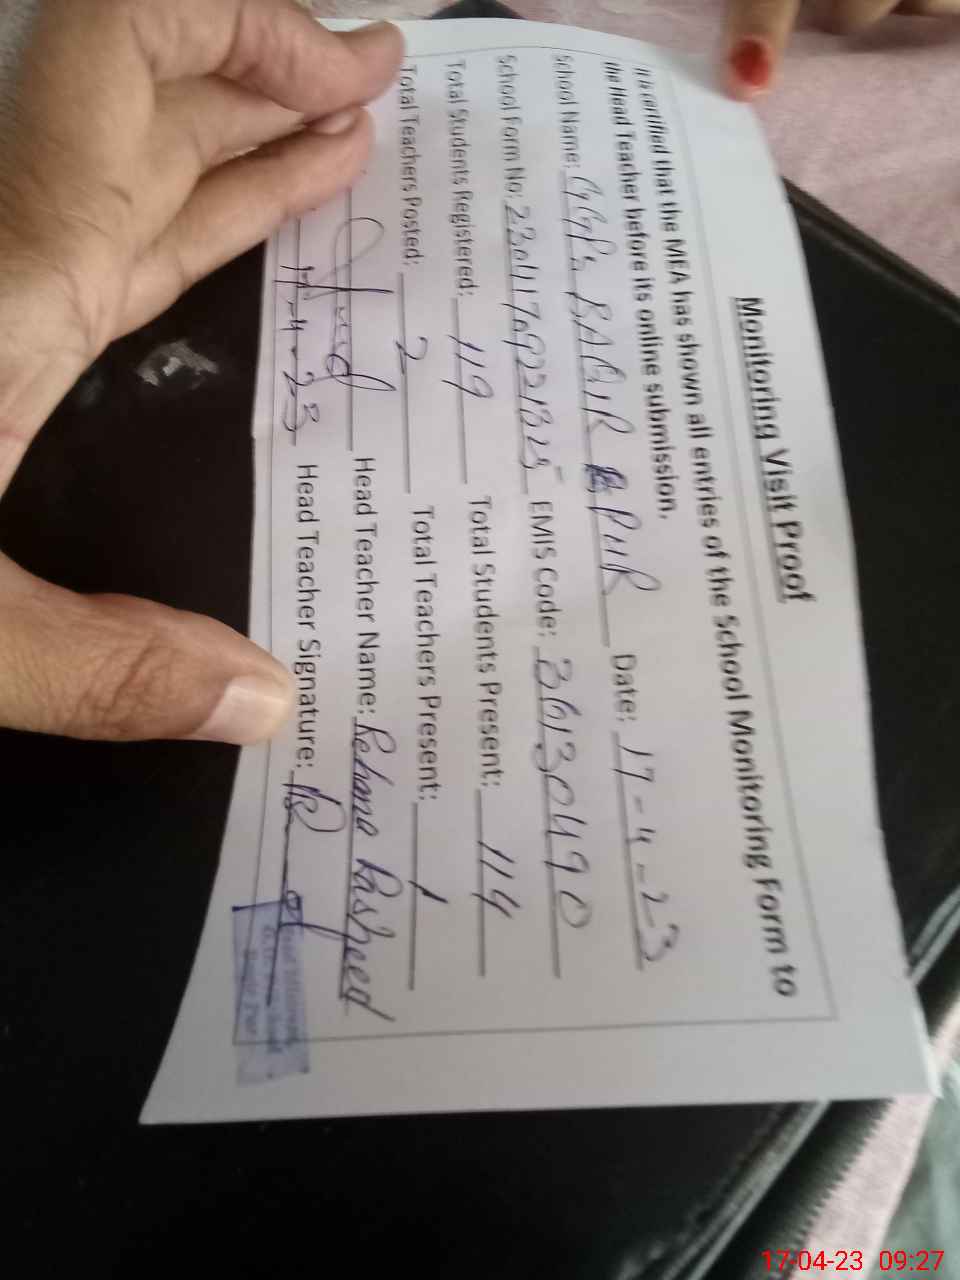 Monitoring Visit Proof
It is certified that the MEA has shown all entries of the School Monitoring Form to
the Head Teacher before its online submission.
School Name: GGPS BAQIR PUR Date: 17-4-23
School Form No: EMIS Code: 36130490
Total Students Registered: 119 Total Students Present: 114
Total Teachers Posted: 2 Total Teachers Present: 1
Head Teacher Name: Rehana Rasheed
17-4-23 Head Teacher Signature:
17-04-23 09:27